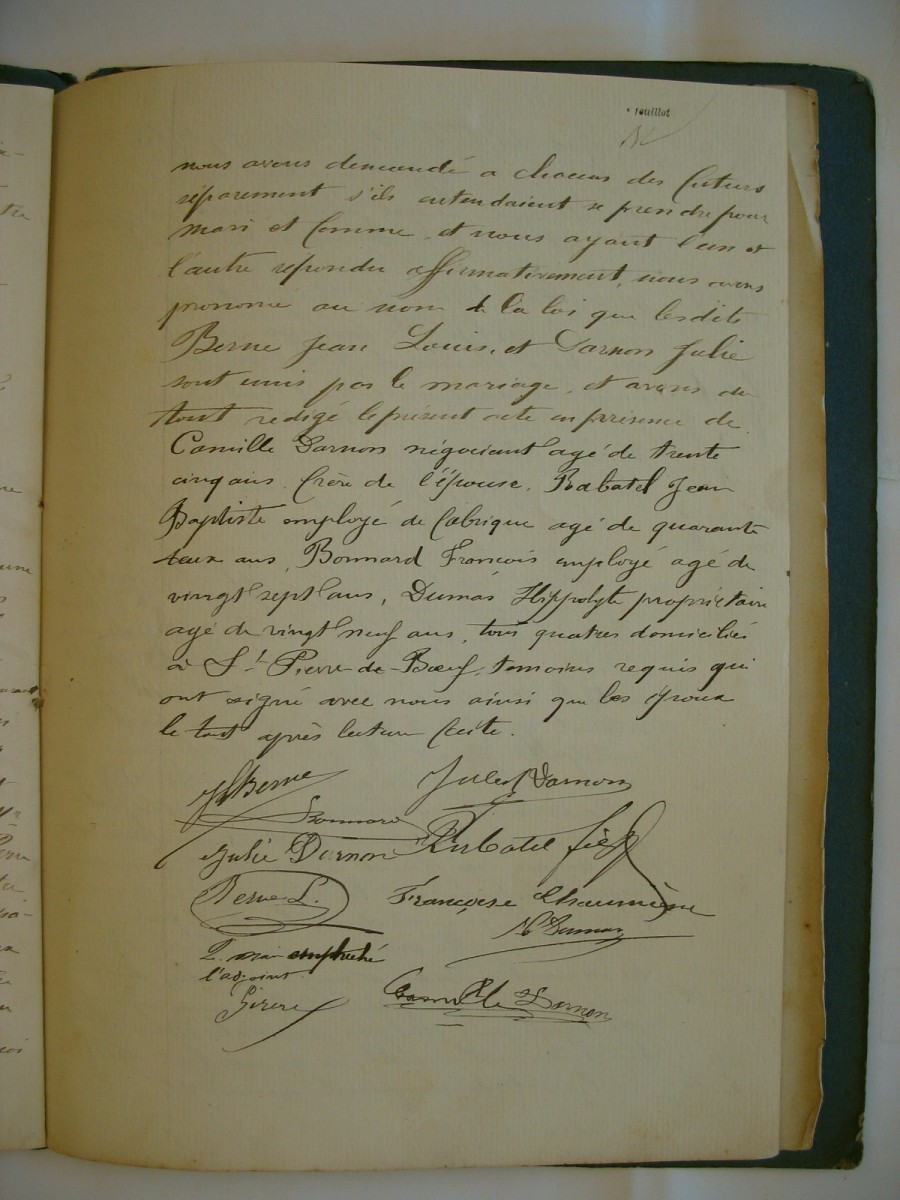 feuillot
nous avons demandé a chacun des futurs
séparement s'ils entendaient se prendre pour
mari et femme, et nous ayant l'un et
l'autre repondu affirmativement, nous avons
prononcé au nom de la loi que lesdits
Berne Jean Louis, et Darnon Julie
sont unis par le mariage, et avons du
tout redigé le présent acte en présence de
Camille Darnon négociant agé de trente
cinq ans, frère de l'épouse, Rabatel Jean
Baptiste employé de fabrique agé de quarante
deux ans, Bonnard François employé agé de
vingt sept ans, Dumas Hippolyte propriétaire
agé de vingt neuf ans, tous quatres domiciliés
à St Pierre-de-Bœuf, temoins requis qui
ont signé avec nous ainsi que les époux
le tout après lecture faite.
JL Berne Jules Darnon
Bonnard
Julie Darnon Rabatel
Berne L. Françoise Chaumière
H Dumas
empêché
l'adjoint
Camille Darnon